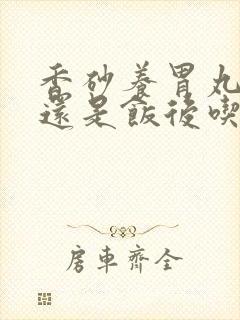 香砂養胃丸
還是飯後喫
房車齊全